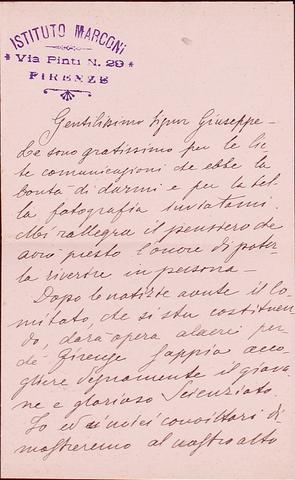 ISTITUTO MARCONI
* Via Pinti N. 29 *
FIRENZE
Gentilissimo Signor Giuseppe -
Le sono gratissimo per le lie-
te comunicazioni che ebbe la
bontà di darmi e per la bel-
la fotografia inviatami.
Mi rallegra il pensiero che
avrò presto l'onore di poter-
la riverire in persona -
Dopo le notizie avute il Co-
mitato, che si sta costituen-
do, darà opera alacre per-
chè Firenze sappia acco-
gliere degnamente il giova-
ne e glorioso Scienziato.
Io ed i miei convittori di-
mostreremo al nostro alto